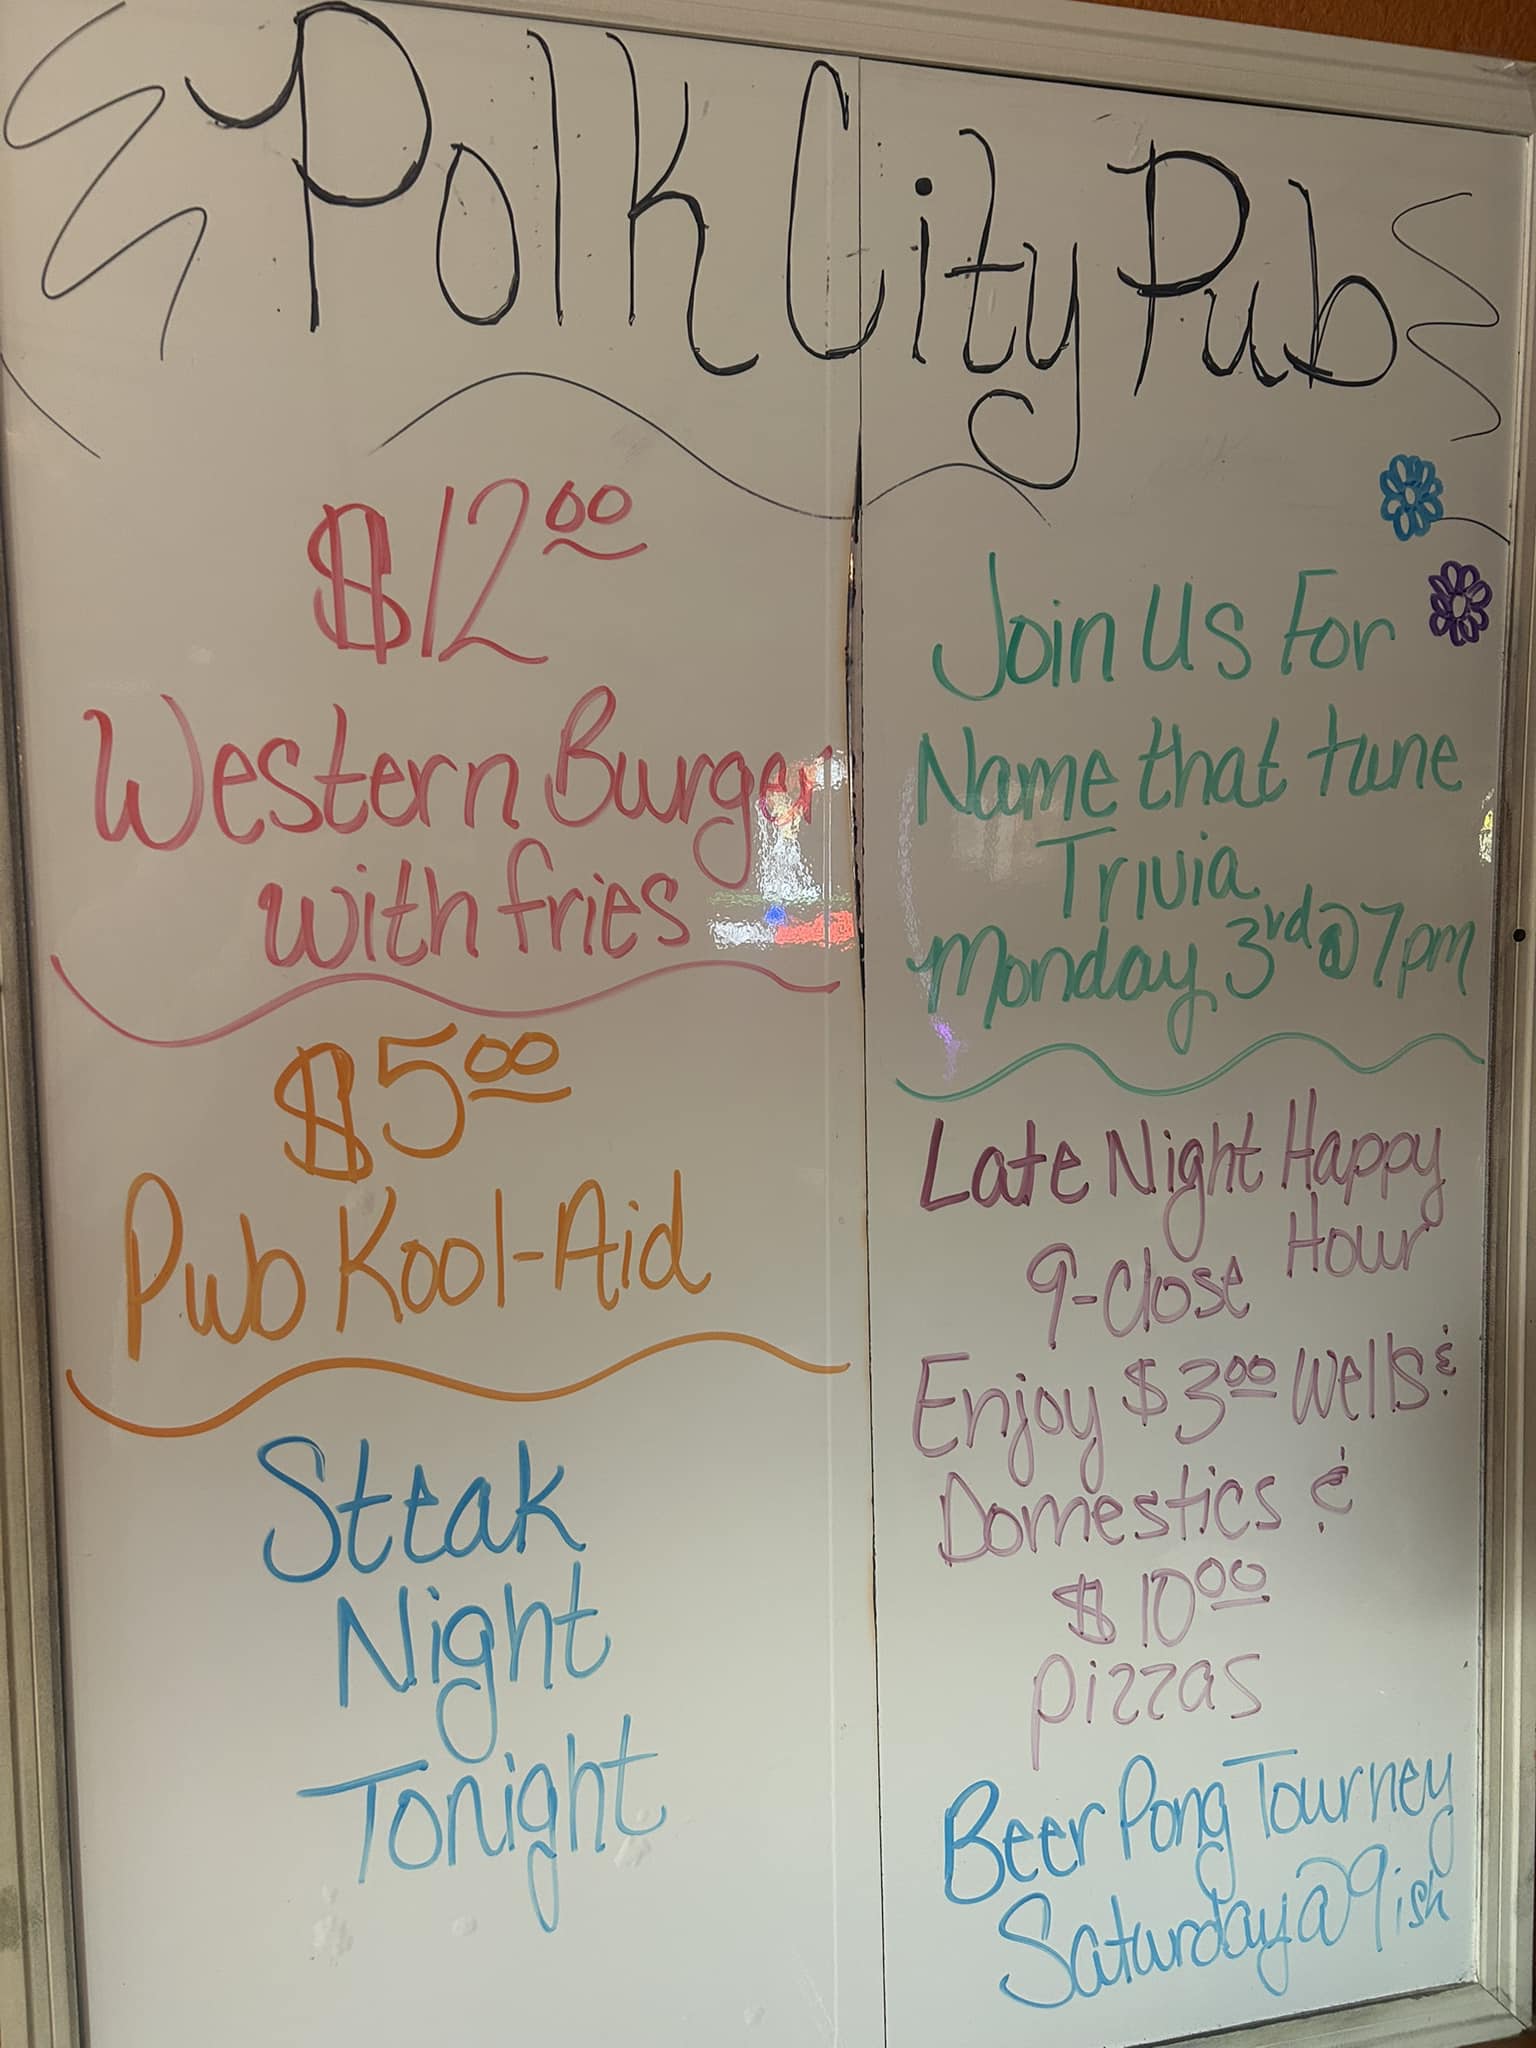 Polk City Pub
$12.00
Western Burger
with fries
$5.00
Pub Kool-Aid
Steak
Night
Tonight
Join Us For
Name that tune
Trivia
Monday 3rd @ 7pm
Late Night Happy
Hour
9-Close
Enjoy $3.00 Wells &
Domestics &
$10.00
pizzas
Beer Pong Tourney
Saturday @ 9ish